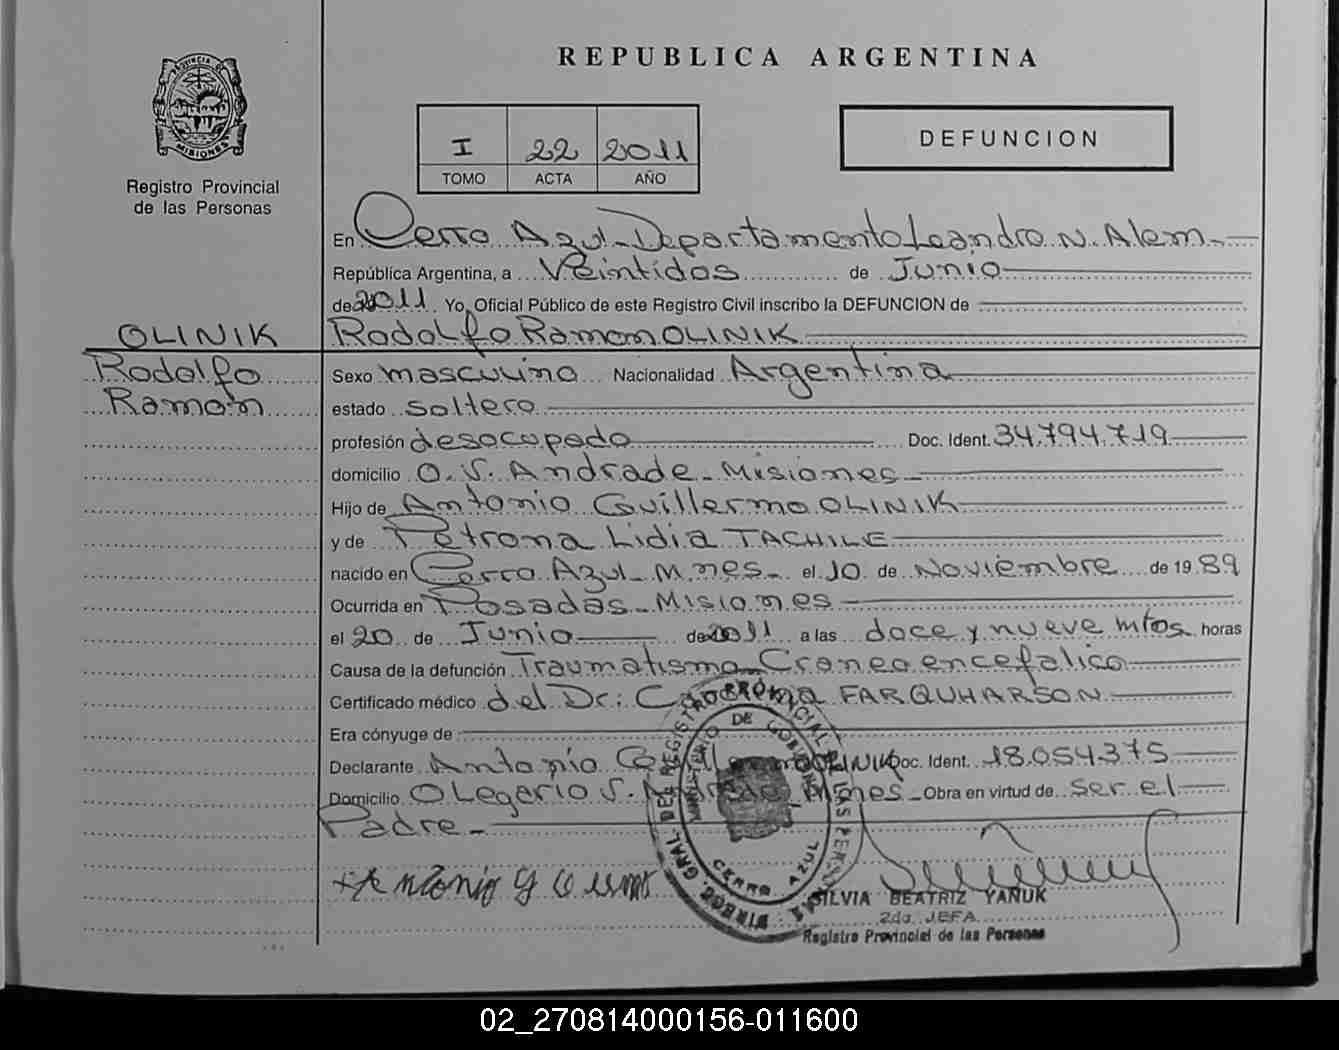 REPUBLICA ARGENTINA
PROVINCIA DE MISIONES
Registro Provincial
de las Personas
I 22 2011
TOMO ACTA AÑO
DEFUNCION
En Cerro Azul - Departamento Leandro N. Alem -
República Argentina, a Veintidos de Junio
de 2011 Yo, Oficial Público de este Registro Civil inscribo la DEFUNCION de
OLINIK
Rodolfo
Ramon
Rodolfo Ramon OLINIK
Sexo masculino Nacionalidad Argentina
estado soltero
profesión desocupado Doc. Ident. 34.794.719
domicilio O. V. Andrade - Misiones -
Hijo de Antonio Guillermo OLINIK
y de Petrona Lidia TACHILE
nacido en Cerro Azul - Mnes - el 10 de Noviembre de 1989
Ocurrida en Posadas - Misiones
el 20 de Junio de 2011 a las doce y nueve mtos horas
Causa de la defunción Traumatismo Craneoencefalico
Certificado médico del Dr: FARQUHARSON
Era cónyuge de
Declarante Antonio Guillermo OLINIK Doc. Ident. 18.054.375
Domicilio Olegario V. Andrade - Mnes - Obra en virtud de ser el
Padre -
DIREC. GRAL. DEL REGISTRO PROVINCIAL DE LAS PERSONAS
MINISTERIO DE GOBIERNO
CERRO AZUL
SILVIA BEATRIZ YAÑUK
2da. JEFA
Registro Provincial de las Personas
02_270814000156-011600